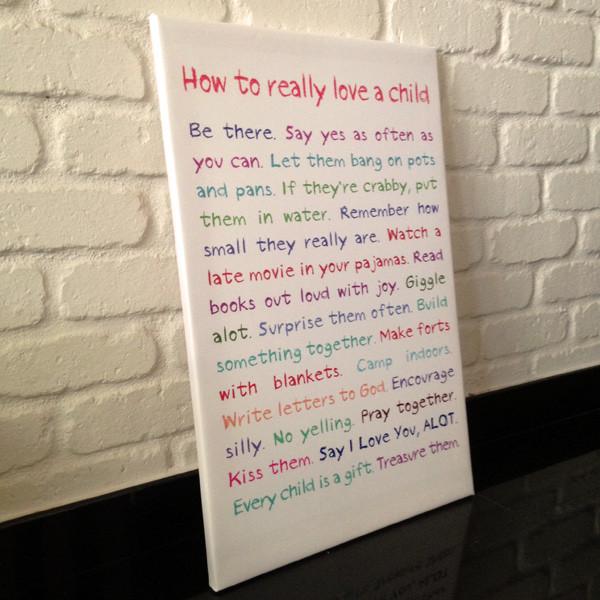 How to really love a child
Be there. Say yes as often as
you can. Let them bang on pots
and pans. If they're crabby, put
them in water. Remember how
small they really are. Watch a
late movie in your pajamas. Read
books out loud with joy. Giggle
alot. Surprise them often. Build
something together. Make forts
with blankets. Camp indoors.
Write letters to God. Encourage
silly. No yelling. Pray together.
Kiss them. Say I Love You, ALOT.
Every child is a gift. Treasure them.